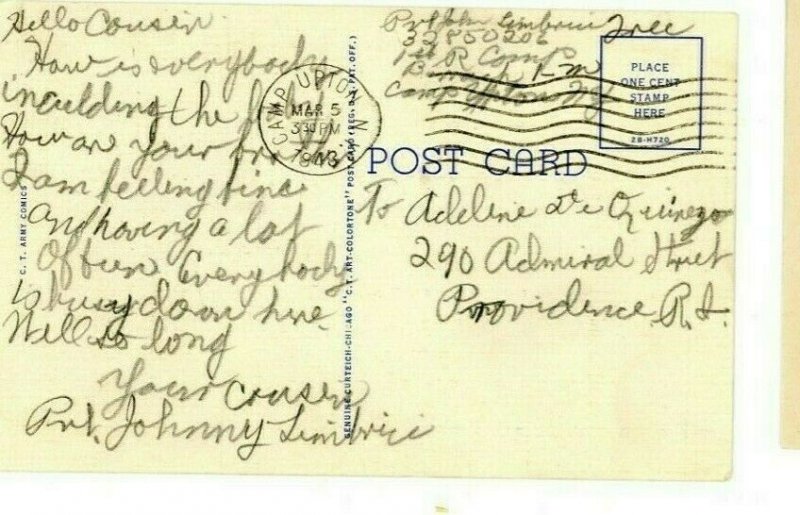 Hello Cousin
How is everybody
inculding the
How are your
I am felling fine
And having a lot
Of fun Everybody
Is busy down here.
Well so long
Your Cousen
Pvt. Johnny Limbrici
C. T. ARMY COMICS
GENUINE CURTEICH-CHICAGO "C.T. ART-COLORTONE" POST CARD (REG. U.S. PAT. OFF.)
Pvt John Limbrici Free
32850206
1st R Comp
Camp Upton N.Y.
CAMP UPTON
MAR 5
3 30 PM
1943
N
PLACE
ONE CENT
STAMP
HERE
2B-H720
POST CARD
To Adeline De
290 Admiral Street
Providence R.I.